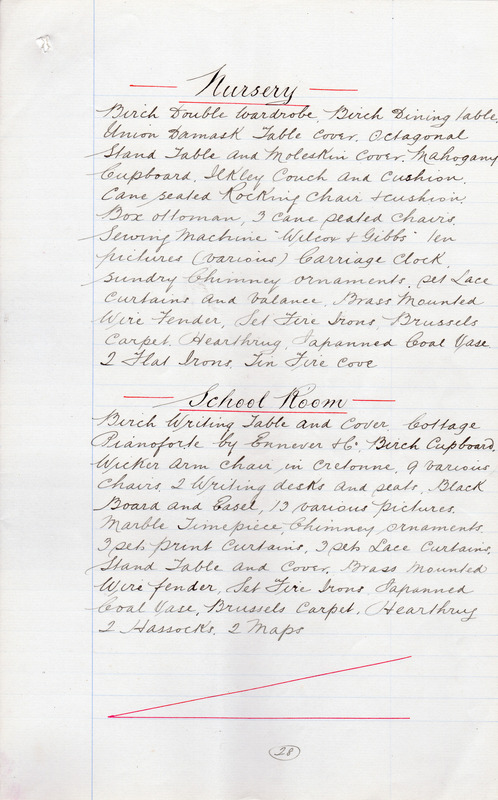 Nursery
Birch Double Wardrobe, Birch Dining Table,
Union Damask Table Cover, Octagonal
Stand Table and Moleskin Cover, Mahogany
Cupboard, Ilkley Couch and Cushion,
Cane seated Rocking Chair & cushion,
Box ottoman, 3 cane seated chairs,
Sewing Machine "Wilcox & Gibbs" ten
pictures (various) Carriage Clock,
Sundry Chimney ornaments, set Lace
Curtains and Valance, Brass Mounted
Wire Fender, Set Fire Irons, Brussels
Carpet, Hearthrug, Japanned Coal Vase
2 Flat Irons, Tin Fire Cove
School Room
Birch Writing Table and Cover, Cottage
Pianoforte by Ennever & Co, Birch Cupboard,
Wicker Arm Chair, in Cretonne, 9 various
chairs, 2 Writing desks and seats, Black
Board and Easel, 13 various pictures,
Marble Timepiece, Chimney ornaments,
3 sets print Curtains, 3 sets Lace Curtains,
Stand Table and Cover, Brass Mounted
Wire fender, Set Fire Irons, Japanned
Coal Vase, Brussels Carpet, Hearthrug
2 Hassocks, 2 Maps
28